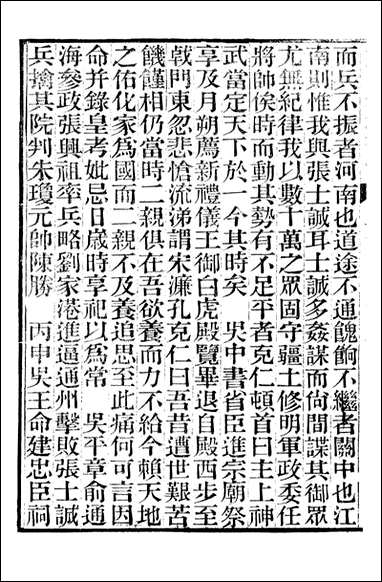 而兵不振者河南也道途不通餽餉不繼者關中也江
南則惟我與張士誠耳士誠多姦謀而尙間諜其御眾
尤無紀律我以數十萬之眾固守疆土修明軍政委任
將帥俟時而動其勢有不足平者克仁頓首曰主上神
武當定天下於一今其時矣　吳中書省臣進宗廟祭
享及月朔薦新禮儀王御白虎殿覽畢退自殿西步至
戟門東忽悲愴流涕謂宋濂孔克仁曰吾昔遭世艱苦
饑饉相仍當時二親俱在吾欲養而力不給今賴天地
之佑化家爲國而二親不及養追思至此痛何可言因
命并錄皇考妣忌日歲時享祀以爲常　吳平章俞通
海參政張興祖率兵略劉家港進逼通州擊敗張士誠
兵擒其院判朱瓊元帥陳勝　丙申吳王命建忠臣祠